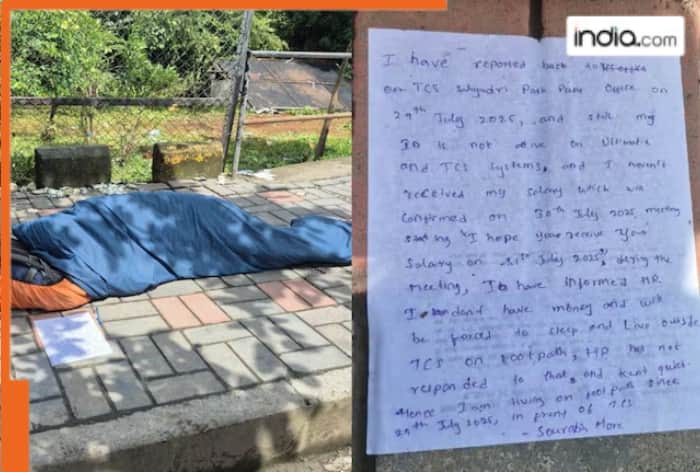 india.com
I have reported back to
on TCS Sahyadri Park Pune Office on
29th July 2025, and still my
ID is not active on Ultimatix
and TCS Systems, and I haven't
received my salary which was
Confirmed on 30th July 2025 meeting
"I hope receive Your
Salary on 31st July 2025", during the
meeting, I have informed HR
I don't have money and will
be forced to sleep and Live outside
TCS on footpath, HR has not
responded to that, and kept quiet.
Hence I am living on footpath since
29th July 2025, in front of TCS
- Sourabh More